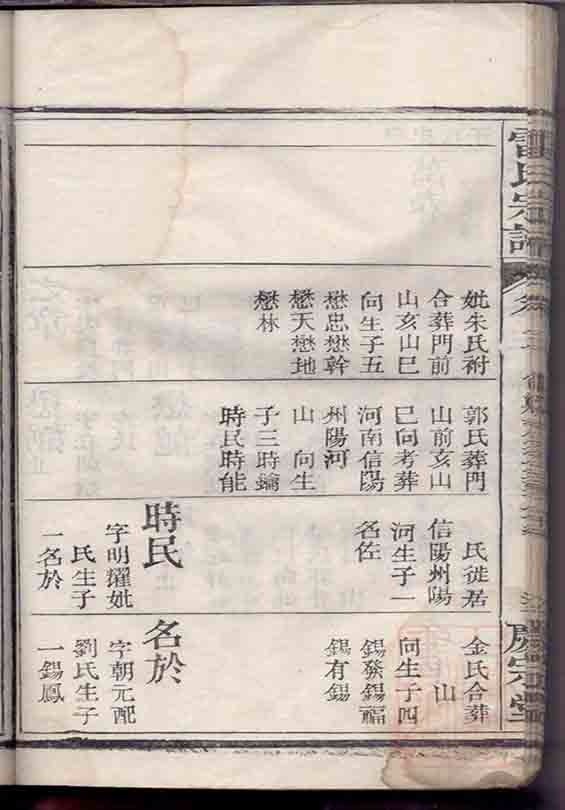 雷氏宗譜
妣朱氏祔
合葬門前
山亥山巳
向生子五
懋忠懋幹
懋天懋地
懋林
郭氏葬門
山前亥山
巳向考葬
河南信陽
州陽河
山 向生
子三時鑰
時民時能
氏徙居
信陽州陽
河生子一
名佐
時民
字明耀妣
氏生子
一名於
金氏合葬
山
向生子四
錫發錫福
錫有錫
名於
字朝元配
劉氏生子
一錫鳳